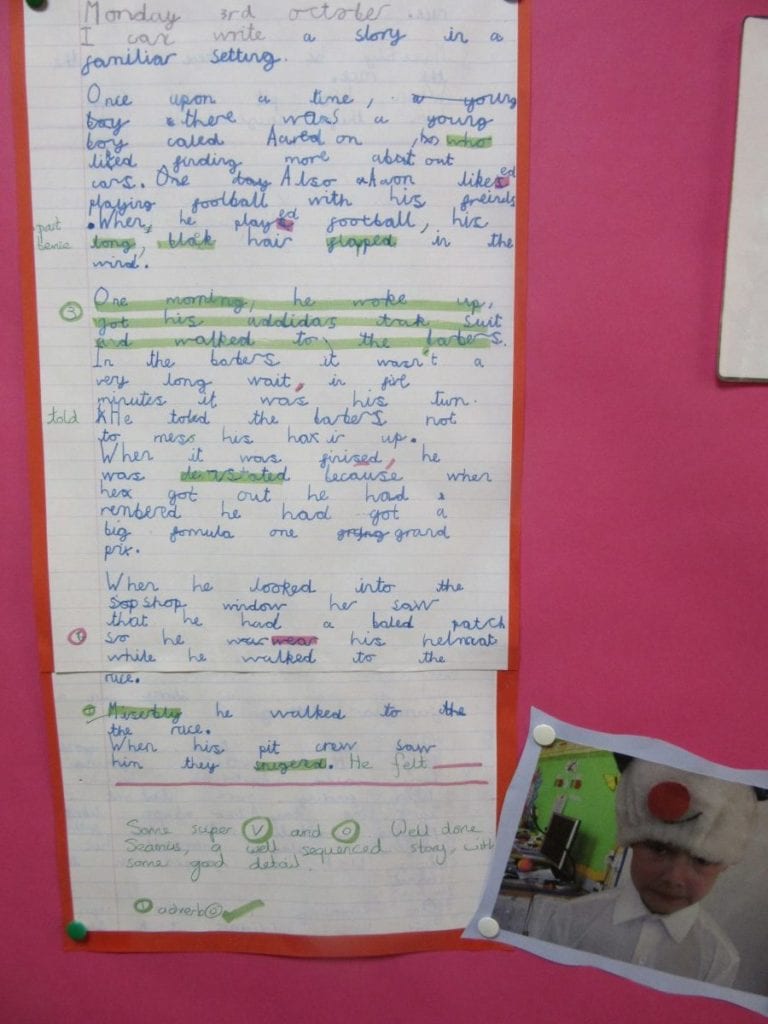 Monday 3rd october.
I can write a story in a
familiar setting.
Once upon a time, a young
boy there was a young
boy caled Aared on , hs who
liked finding more about out
cars. One day Also Aaron likesed
playing foolball with his freinds
.When, he played football, his
past
tense
long, blak hair flaped in the
wind.
3
One morning, he woke up,
got his addidas trak suit
and walked to the barbers.
In the barbers it wasn't a
very long wait, in five
minutes it was his turn.
told
He toled the barbers not
to mess his hair up.
When it was finised, he
was devastated because when
he got out he had
rembered he had got a
big fomula one grand
prix.
When he looked into the
Sop shop window her saw
that he had a baled patch
so he war wear his helmat
while he walked to the
race.
Miserbly he walked to the
the race.
When his pit crew saw
him they snigerd. He felt
Some super V and O. Well done
Seamus, a well sequenced story, with
some good detail.
adverb